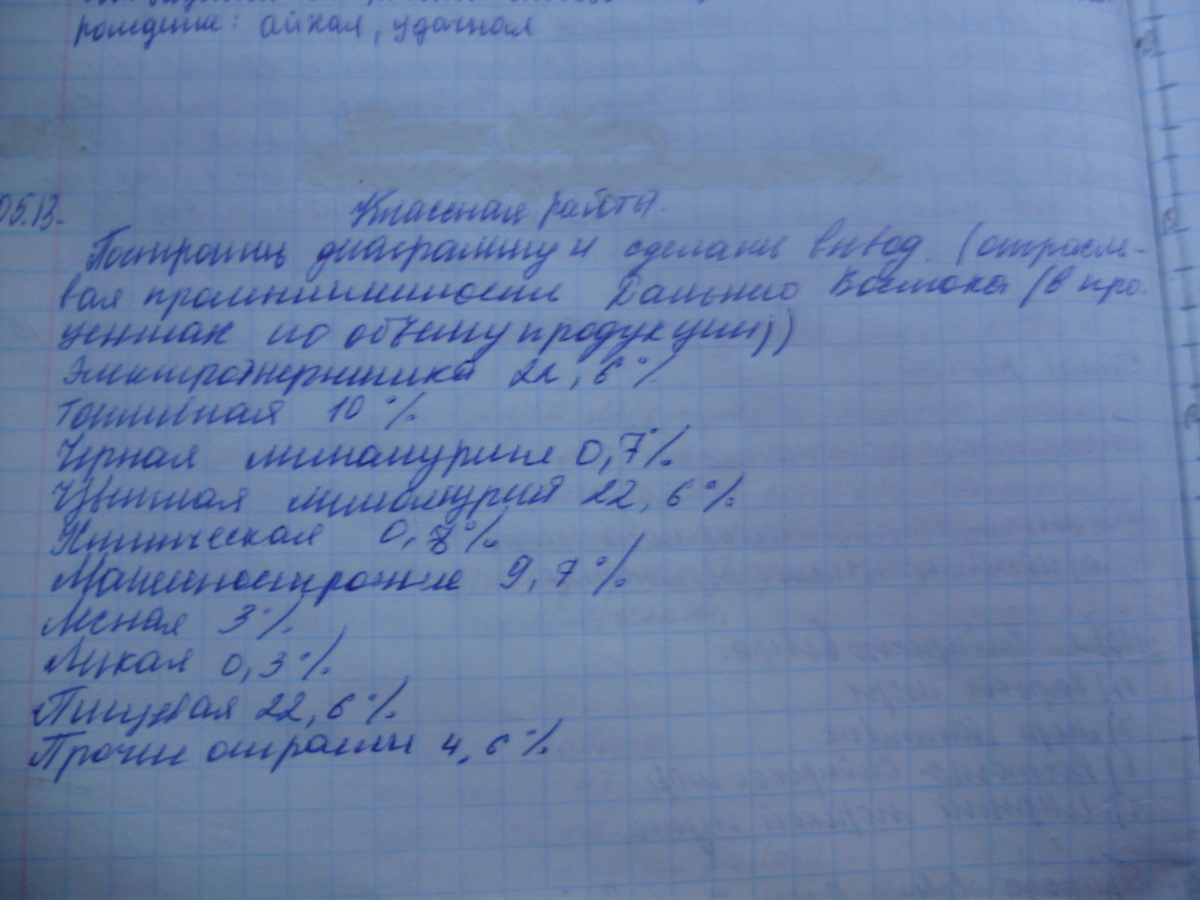 рождение: айхал, удачная
05.13.
Классная работа.
Построить диаграмму и сделать вывод. (отрасле-
вая промышленности Дальнего Востока (в про-
центах по объему продукции))
Электроэнергетика 22,6%
Топливная 10%
Чёрная металлургия 0,7%
Цветная металлургия 22,6%
Химическая 0,7%
Машиностроение 9,7%
Лесная 3%
Легкая 0,3%
Пищевая 22,6%
Прочие отрасли 4,6%